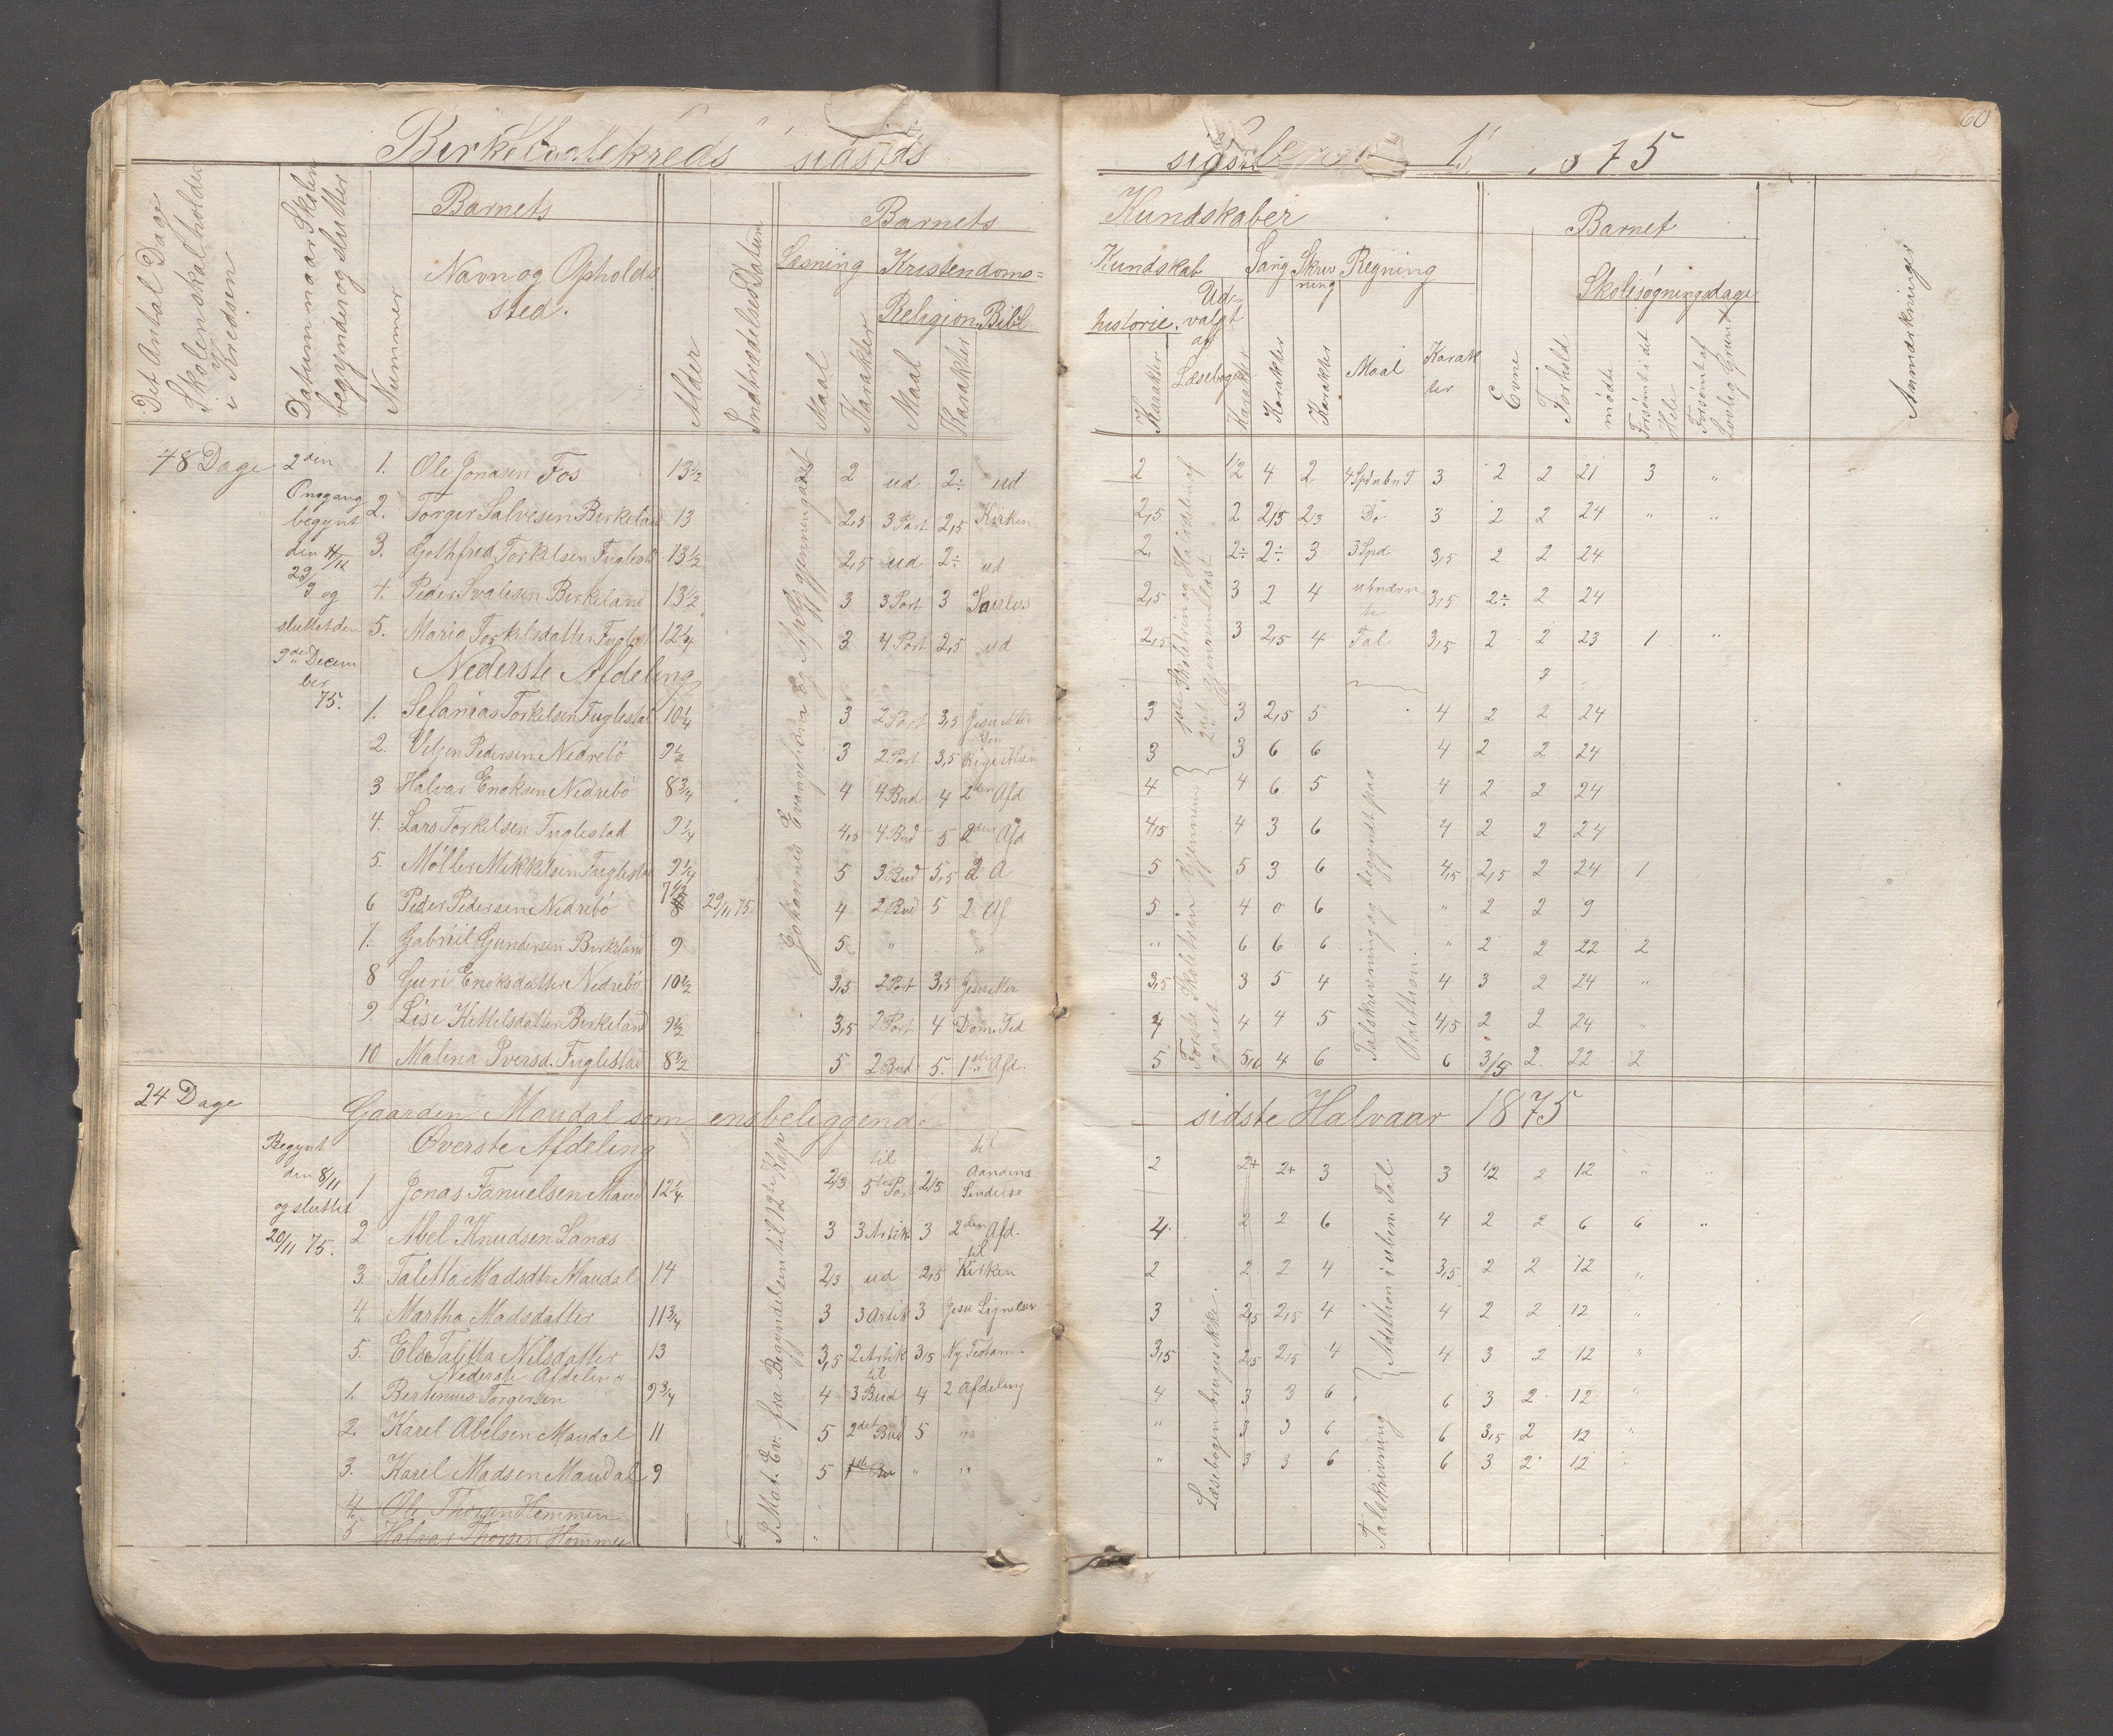 60
sidste 1875
Det Antal Dage Skolen skal holdes i Kredsen
Datum naar Skolen begynder og slutter
Nummer
Barnets
Navn og Opholds
sted.
Alder
Indtrædelses Datum
Barnets
Læsning
Kristendoms=
Religion. Bibl
Maal
Karakter
Maal
Karakter
Kundskaber
Kundskab
historie.
Karakter
Ud-
valgt
af
Læsebogen
Karakter
Sang
Karakter
Skriv
ning
Karakter
Regning
Maal
Karak
ter
Barnet
Evne
Forhold
Skolesøgningsdage
mødte
Forsømt i det Hele
Forsømt af Lovlig Grund
Anmærkninger
48 Dage
2den
Omgang
begynt
den 11/11
29/9 og
sluttet den
9de Decem
ber
75.
1. Ole Jonasen Fos 13½ 2 ud 2÷ ud 2 ½ 4 2 3 2 2 21 3 "
2. Torger Salvesen Birkeland 13 2,5 3 Part 2,5 Kirken 2,5 2 2,5 2/3 Do 3 2 2 24 " "
3. Gothfred Torkelsen Fuglest 13½ 2,5 ud 2÷ ud 2. 2÷ 2÷ 3 3 Spd 3,5 2 2 24
4. Peder Svalesen Birkeland 13½ 3 3 Part 3 2,5 3 2 4 ubnævn
te 3,5 2÷ 2 24
5. Maria Torkelsdatter Fuglest 12¼ 3 4 Part 2,5 ud 2,5 3 2,5 4 Tal 3,5 2 2 23 1 "
Nederste Afdeling
1. Sefanias Torkelsen Fuglestad 10¼ 3 2 Part 3,5 3 3 2,5 5 4 2 2 24
2. Viljen Pedersen Nedrebö 9½ 3 2 Part 3,5 3 3 6 6 4 2 2 24
3 Halvar Enoksen Nedrebö 8¾ 4 4 Bud 4 2den Afd 4 4 6 5 4 2 2 24
4. Lars Torkelsen Fuglestad 9¼ 4,5 4 Bud 5 2den Afd 4,5 4 3 6 4 2 2 24
5. Möller Mikkelsen Fuglestad 9¼ 5 3 Bud 5,5 2 A 5 5 3 6 4,5 2,5 2 24 1
6 Peder Pedersen Nedrebö 7½ 29/11 75 4 2 Bud 5 2 Af 5 4 0 6 " 2 2 9
7. Gabriel Gundersen Birkeland 9 5 " " " 6 6 6 " 2 2 22 2
8 Guri Enoksdatter Nedrebö 10½ 3,5 2 Part 3,5 3,5 3 5 4 4 3 2 24 "
9. Lise Kittelsdatter Birkeland 9½ 3,5 2 Part 4 4 4 4 5 4,5 2 2 24 "
10 Malena Iversd. Fuglestad 8½ 5 2 Bud 5. 1ste Afd. 5. 4 6 6 3,5 2. 22 2
Johannes Evangelium
Talskrivning og begyndt paa
Adittion.
24 Dage
Gaarden Maudal som ensbeliggende
sidste Halvaar 1875
Begynt
den 8/11
og sluttet
20/11 75.
Överste Afdeling
1 Jonas Fanuelsen Maud 12¼ 2/3 til
5te Part 2,5 til
Aandens
2 2+ 2+ 3 3 ½ 2 12 " "
2 Abel Knudsen Lanæs 3 3 Artik 3 2den Afd. 4. 2 2 6 4 2 2 6 6 "
3. Taletta Madsdtr Maudal 14 2/3 ud 2,5 til
Kirken 2 2 2 4 3,5 2 2 12 "
4. Martha Madsdatter 11¾ 3 3 Artik 3 Jesu Lignelser 3 2,5 2,5 4 4 2 2 12 "
5. Else Taletta Nilsdatter 13 3,5 2 Artik 3,5 Ny Testam- 3,5 2,5 2,5 4 4 3 2 12 "
Nederste Afdeling
1. Bertinius Torgersen 9¾ 4 til
3 Bud 4 2 Afdeling 4 3 3 6 6 3 2 12 "
2. Karel Abelsen Maudal 11 5 2det Bud 5 " " 3 3 6 6 3,5 2 12 "
3. Karel Madsen Maudal 9 5 " " " 3 3 6 6 3 2 12
4. Ole Thorsen Hommen
5 Halvar Thorsen Hommen
P. Mat. Ev. fra Begyndelsen til 12te Kap
Læsebogen bruges ikke.
Adittion i uben. Tal
Talskrivning